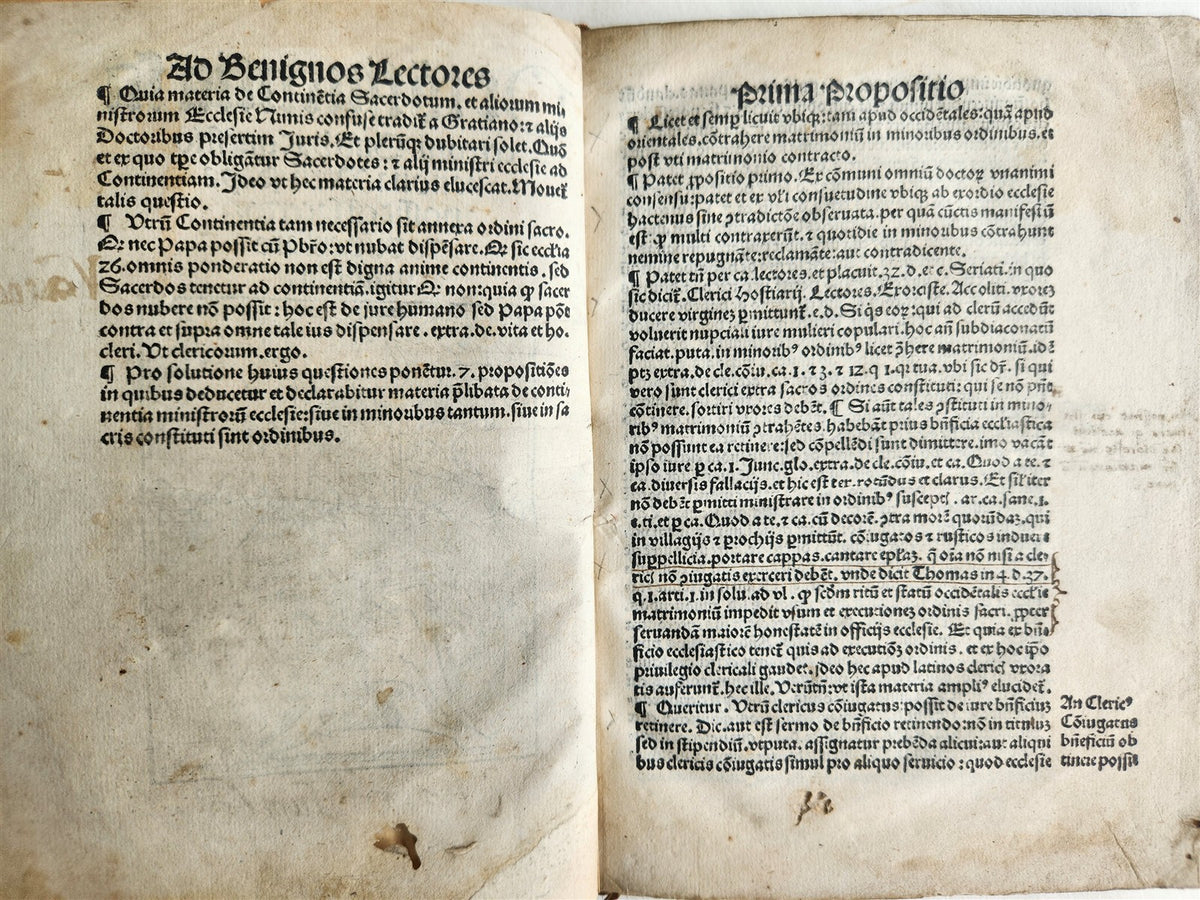 Ad Benignos Lectores
¶ Quia materia de Continẽtia Sacerdotum. et aliorum mi,
nistrorum Ecclesie Nimis confuse tradiť a Gratiano: ⁊ alijs
Doctoribus presertim Juris. Et plerũqꝫ dubitari solet. Quõ
et ex quo tꝑe obligãtur Sacerdotes: ⁊ alij ministri ecclesie ad
Continentiam. Ideo vt hec materia clarius elucescat. Mouet̃
talis questio.
¶ Vtrũ Continentia tam necessario sit annexa ordini sacro.
Ꝙ nec Papa possit cũ Pbr̃o: vt nubat dispẽsare. Ꝙ sic eccl̃ia
26. omnis ponderatio non est digna anime continentis. sed
Sacerdos tenetur ad continentiã. igitur Ꝙ non: quia ꝙ sacer
dos nubere nõ possit: hoc est de jure humano sed Papa põt
contra et supra omne tale ius dispensare. extra. de. vita et ho.
cleri. Vt clericorum. ergo.
¶ Pro solutione huius questiones ponẽtur. 7. propositiões
in quibus deducetur et declarabitur materia p̃libata de conti,
nentia ministrorũ ecclesie: siue in minoribus tantum. siue in sa
cris constituti sint ordinibus.
Prima Propositio
¶ Licet et semꝑ licuit vbiqꝫ: tam apud occidẽtales: quã apud
orientales. cõtrahere matrimoniũ in minoribus ordinibus. et
post vti matrimonio contracto.
¶ Patet ꝓpositio primo. Ex cõmuni omniũ doctoꝝ vnanimi
consensu: patet et ex vl̃i consuetudine vbiqꝫ ab exordio ecclesie
hactenus sine ꝯtradictõe obseruata. per quã cũctis manifestũ
est ꝙ multi contraxerũt. ⁊ quotidie in minoribus cõtrahunt
nemine repugnãte: reclamãte: aut contradicente.
¶ Patet tñ per ca. lectores. et placuit. 32. d. et c. Seriatĩ. in quo
sic diciť. Clerici Hostiarij. Lectores. Exorciste. Accoliti. vxorez
ducere virginez ꝑmittunť. e. d. Si q̃s eoꝝ: qui ad clerũ accedũt
voluerit nupciali iure mulieri copulari. hoc añ subdiaconatũ
faciat. puta. in minoribꝰ ordinibꝰ licet ꝯ̃here matrimoniũ. idẽ
ptꝫ extra. de cle. cõiu. ca. 1. ⁊ 3. ⁊ 12. q 1. qr tua. vbi sic dr̃. si qui
vero sunt clerici extra sacros ordines constituti: qui se nõ pñt
cõtinere. sortiri vxores debẽt. ¶ Si aũt tales ꝯstituti in mino,
ribꝰ matrimoniũ ꝯtrahẽtes. habebãt prius bñficia eccl̃iastica
nõ possunt ea retinere: sed cõpellẽdi sunt dimittere. imo vacãt
ipso iure ꝑ ca. 1. Junc. glo. extra. de cle. cõiu. et ca. Quod a te. ⁊
ca. diuersis fallacijs. et hic est ter. rotũdus et clarus. Et sil̃iter
nõ debẽt ꝑmitti ministrare in ordinibꝰ suscepti. ar. ca. sane. 1.
e. ti. et ꝑ ca. Quod a te. ⁊ ca. cũ decorẽ. ꝯtra morẽ quorũdaz. qui
in villagijs ⁊ ꝑrochijs ꝑmittũt. cõiugatos ⁊ rusticos induere
suppellicia. portare cappas. cantare epl̃az. q̃ oĩa nõ nisi a cle,
ricis nõ ꝯiugatis exerceri debẽt. vnde dicit Thomas in 4. d. 37.
q. 1. arti. 1. in solu. ad vl. ꝙ scd̃m ritũ et statũ occidẽtalis eccl̃ie
matrimoniũ impedit vsum et executionez ordinis sacri. ꝓpter
seruandã maiorẽ honestatẽ in officijs ecclesie. Et quia ex bñe,
ficio ecclesiastico teneť quis ad executiõꝫ ordinis. et ex hoc ip̃o
priuilegio clericali gaudet. ideo hec apud latinos clericis vxora
tis auferunť. hec ille. Verũtñ: vt ista materia ampliꝰ elucideť.
¶ Queritur. Vtrũ clericus cõiugatus: possit de iure bñficiuz
retinere. Dic. aut est sermo de bñficio retinendo: nõ in titulũz
sed in stipendiũ. vtputa. assignatur prebẽda alicui: aut aliqui
bus clericis cõiugatis simul pro aliquo seruicio: quod ecclesie
An Clericꝰ
Cõiugatus
bñeficiũ ob
tinere possit